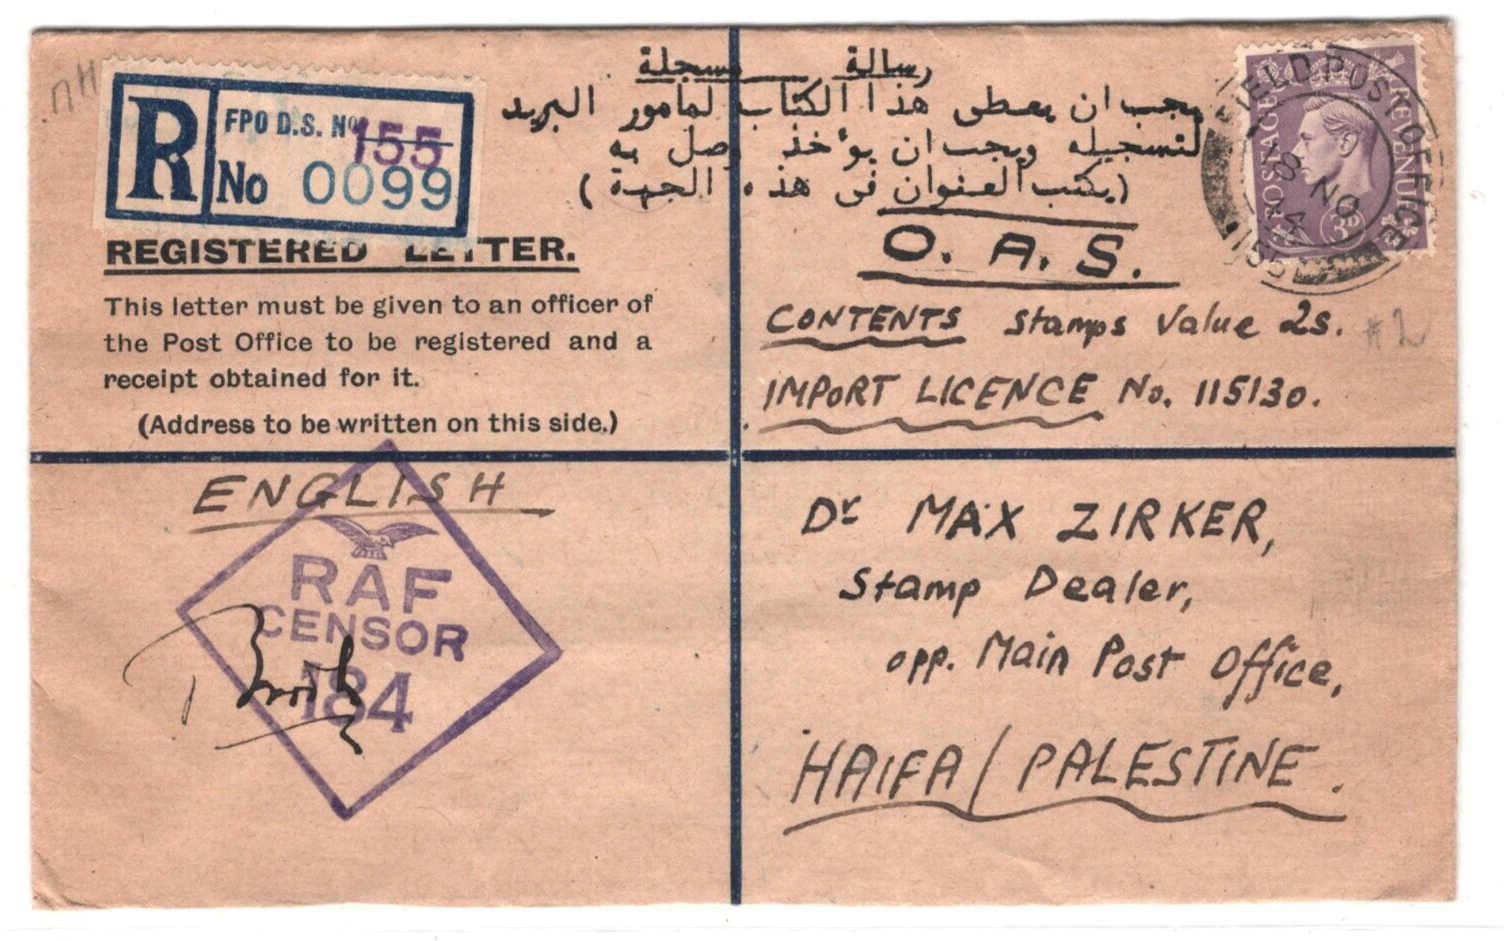 R
FPO D.S. Nº 155
No 0099
رسالة مسجلة
يجب ان يعطى هذا الكتاب لمأمور البريد
لتسجيله ويجب ان يؤخذ وصل به
(يكتب العنوان فى هذه الجهة)
REGISTERED LETTER.
This letter must be given to an officer of
the Post Office to be registered and a
receipt obtained for it.
(Address to be written on this side.)
POSTAGE REVENUE
3D
FIELD POST OFFICE
8 NO
155
O. A. S.
CONTENTS Stamps Value 2s.
#2
IMPORT LICENCE No. 115130.
ENGLISH
RAF
CENSOR
184
Dr MAX ZIRKER,
Stamp Dealer,
opp. Main Post Office,
HAIFA / PALESTINE.